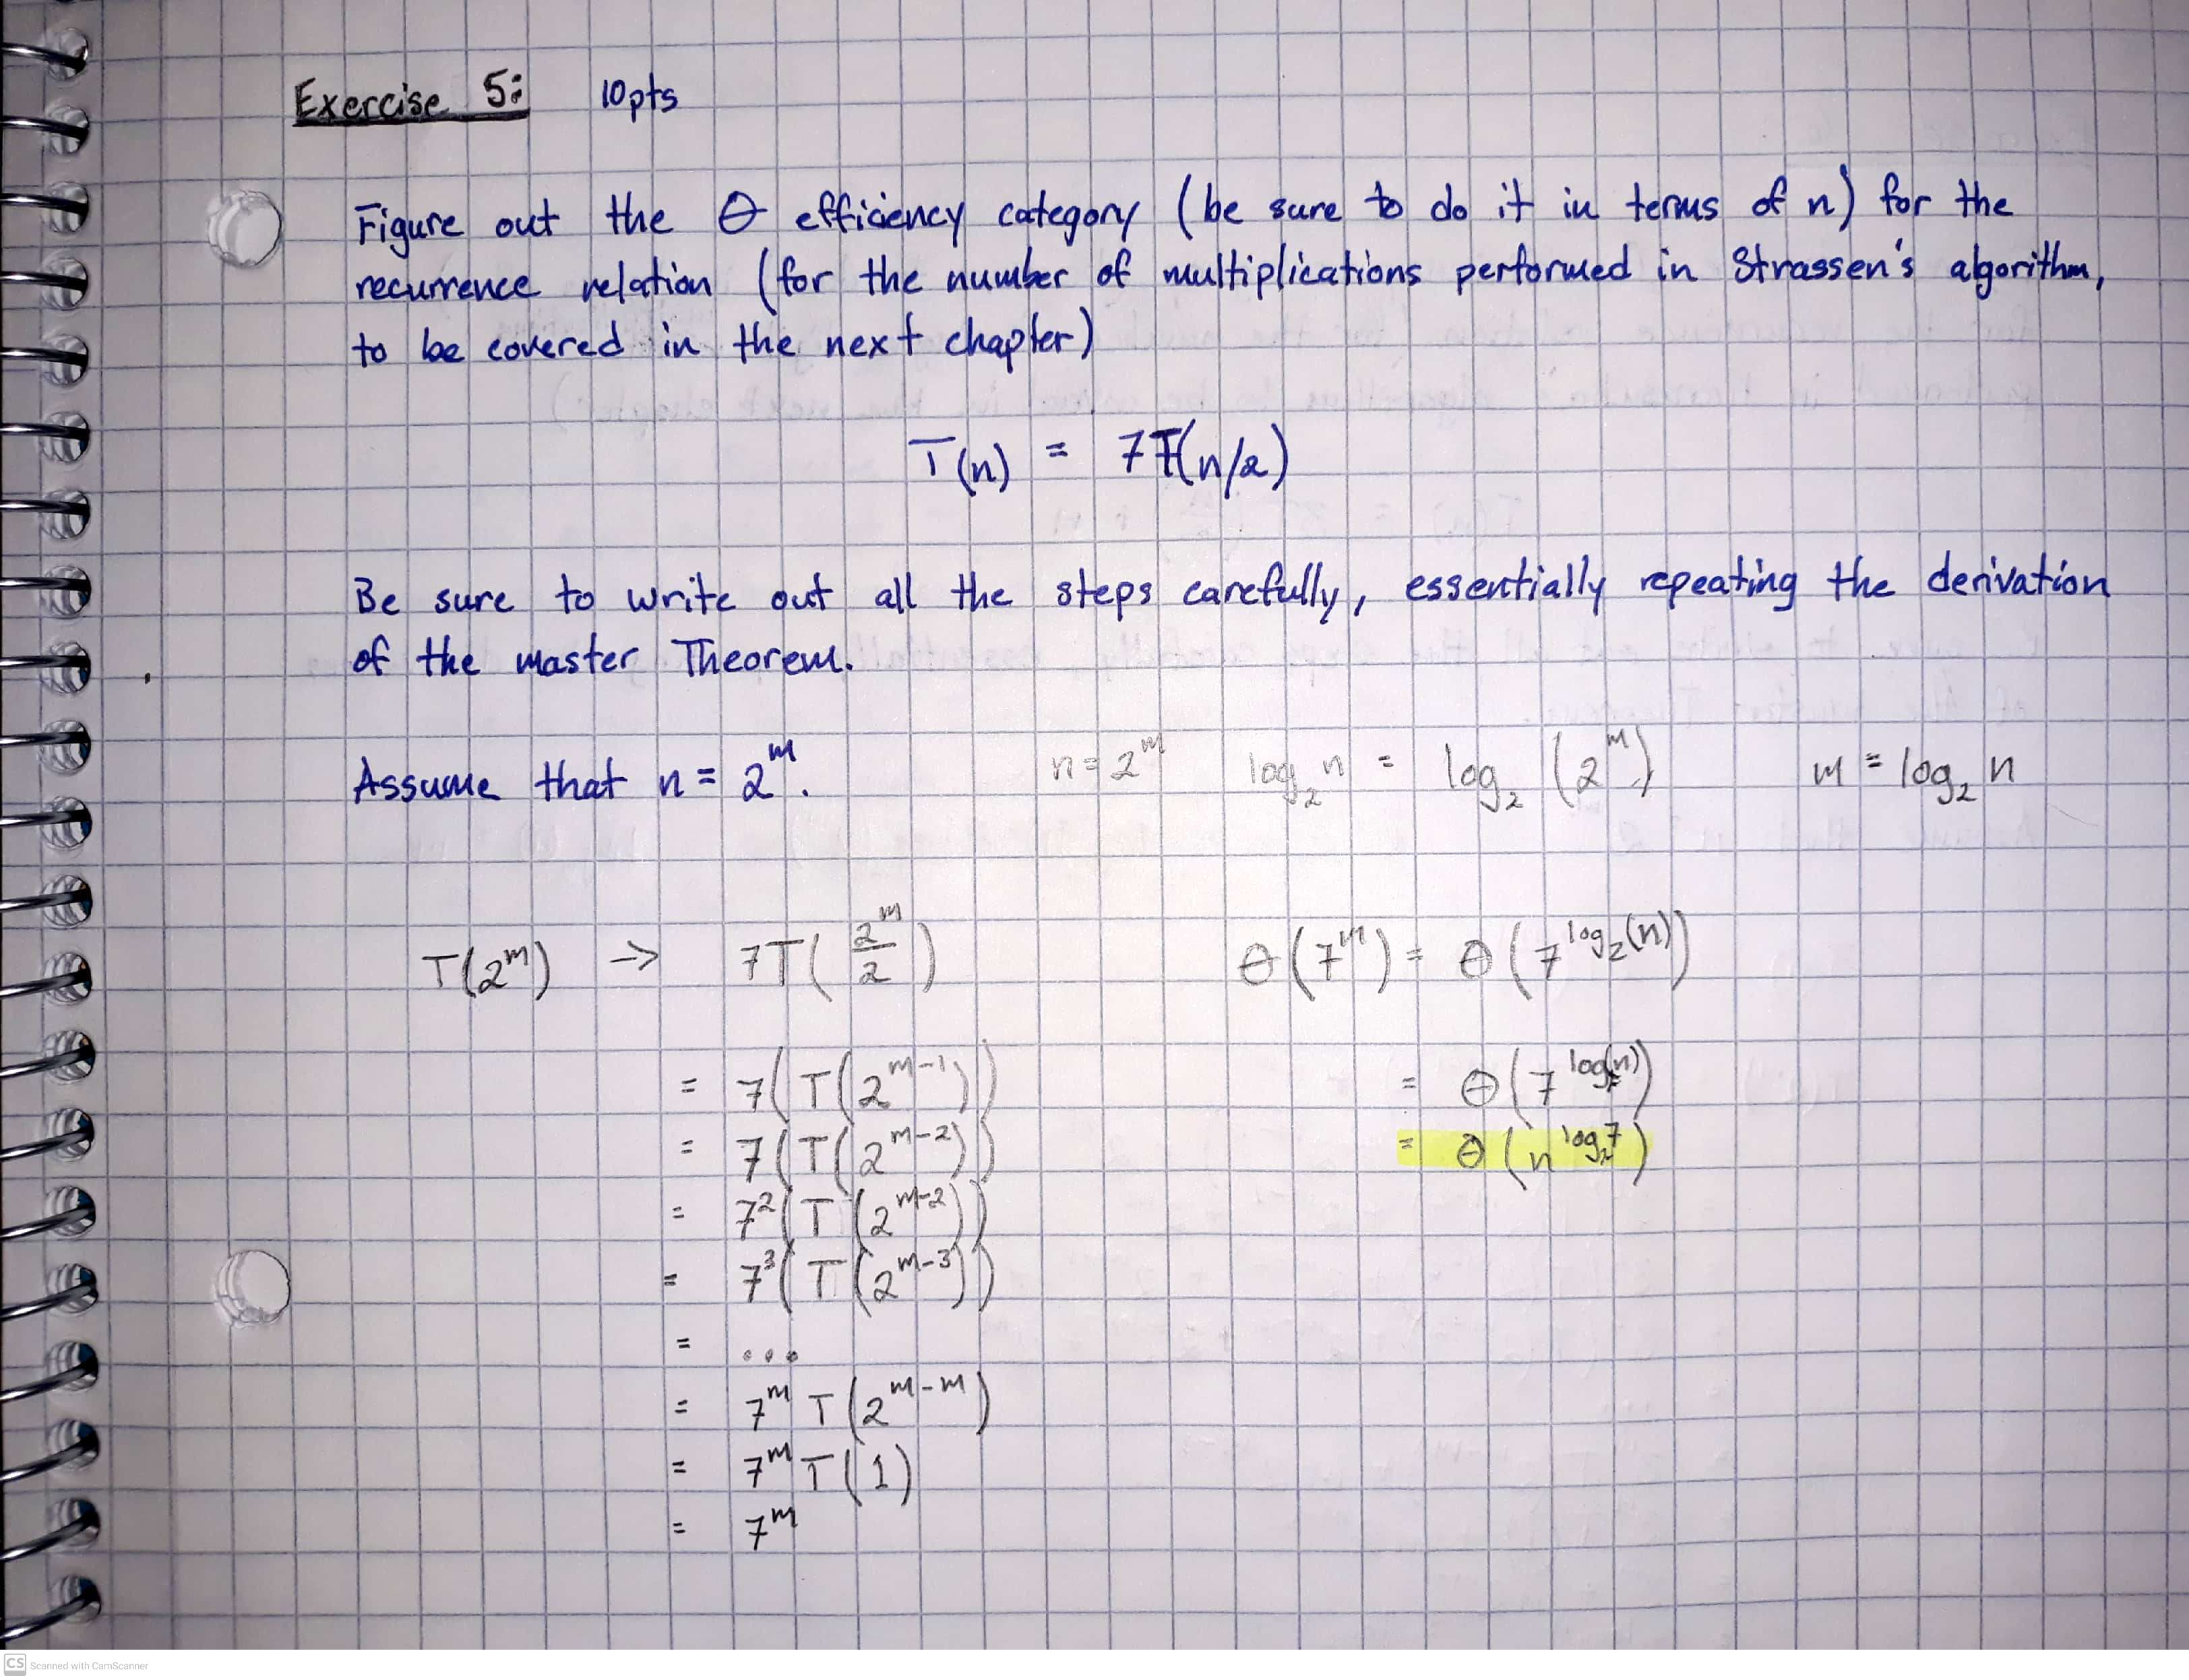 Exercise 5: 10pts
Figure out the Θ efficiency category (be sure to do it in terms of n) for the
recurrence relation (for the number of multiplications performed in Strassen's algorithm,
to be covered in the next chapter)
T(n) = 7T(n/2)
Be sure to write out all the steps carefully, essentially repeating the derivation
of the master Theorem.
Assume that n = 2^m. n = 2^m log_2 n = log_2 (2^m) m = log_2 n
T(2^m) -> 7T(2^m/2) Θ(7^m) = Θ(7^log_2(n))
= 7(T(2^m-1)) = Θ(7^log_2(n))
= 7(T(2^m-2)) = Θ(n^log_2 7)
= 7^2(T(2^m-2))
= 7^3(T(2^m-3))
= ...
= 7^m T(2^m-m)
= 7^m T(1)
= 7^m
CS Scanned with CamScanner